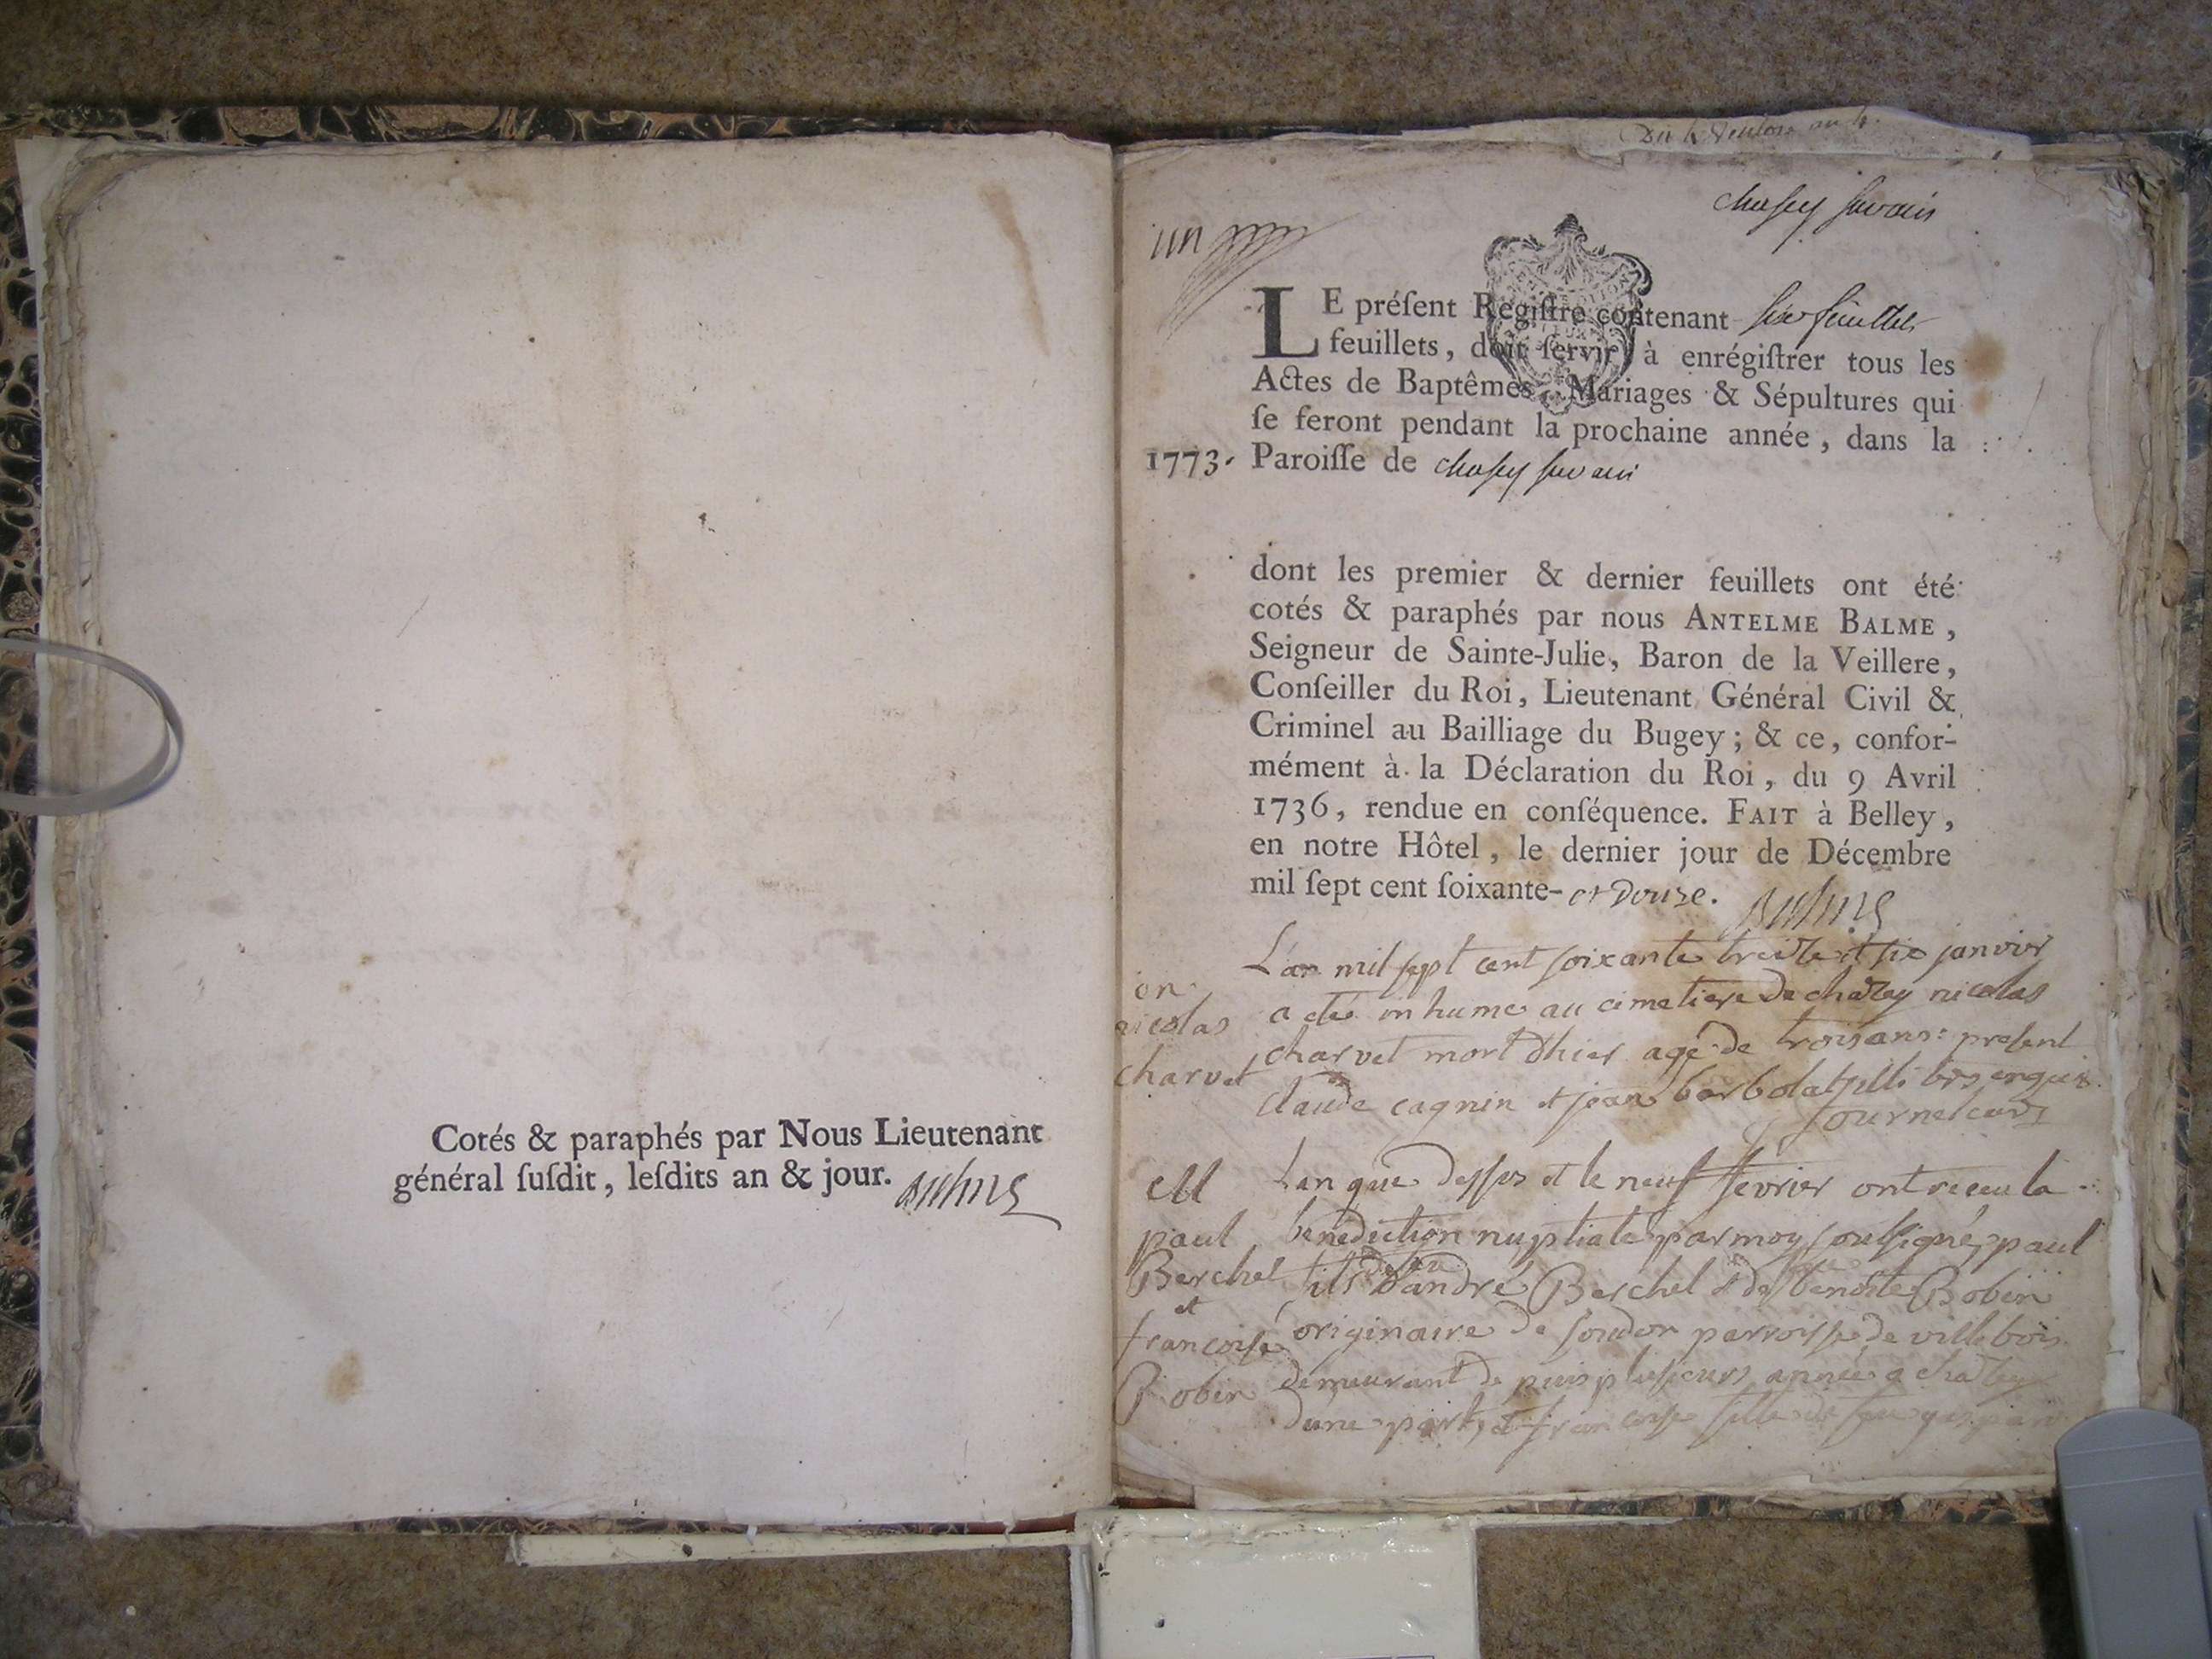 Cotés & paraphés par Nous Lieutenant
général ſuſdit, leſdits an & jour.
un
LE préſent Regiſtre contenant six feuillets
feuillets, doit ſervir à enrégiſtrer tous les
Actes de Baptêmes, Mariages & Sépultures qui
ſe feront pendant la prochaine année, dans la
1773. Paroiſſe de
dont les premier & dernier feuillets ont été
cotés & paraphés par nous ANTELME BALME,
Seigneur de Sainte-Julie, Baron de la Veillere,
Conſeiller du Roi, Lieutenant Général Civil &
Criminel au Bailliage du Bugey; & ce, confor-
mément à la Déclaration du Roi, du 9 Avril
1736, rendue en conſéquence. FAIT à Belley,
en notre Hôtel, le dernier jour de Décembre
mil ſept cent ſoixante- et Douze.
L'an mil sept cent soixante treize et six janvier
a eté inhume au cimetiere de chazey nicolas
charvet mort d'hier agé de trois ans: present
claude cagnin et jean
nicolas
charvet
L'an que dessus et le neuf fevrier ont receu la
benediction nuptiale par moy soussigné, paul
fils d'andré Berchet et de benoite Robin
originaire de soudon parroisse de villebois
demeurant depuis plusieurs année a chazey
d'une part, et francoise fille de
M
paul
Berchet
et
francoise
Robin